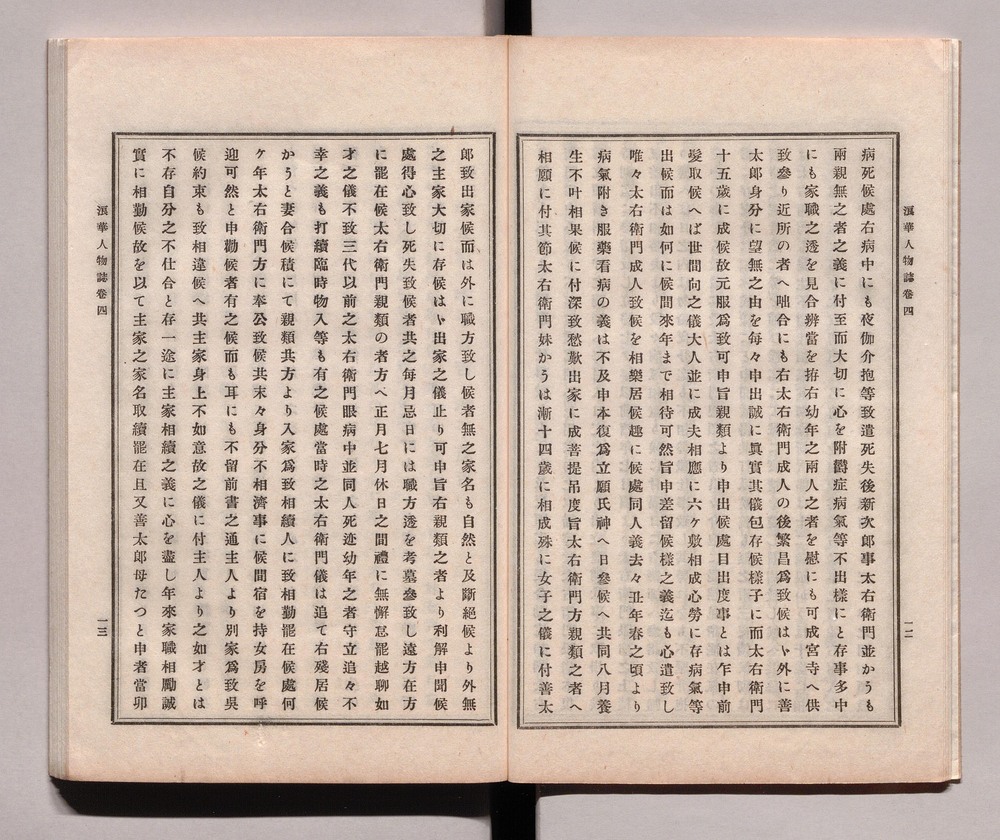 浪華人物誌卷四
一二
病死候處右病中にも夜伽介抱等致遣死失後新次郞事太右衞門並かうも
兩親無之者之義に付至而大切に心を附欝症病氣等不出樣にと存事多中
にも家職之透を見合辨當を拵右幼年之兩人之者を慰にも可成宮寺へ供
致參り近所の者へ咄合にも右太右衞門成人の後繁昌爲致候はゝ外に善
太郞身分に望無之由を每々申出誠に眞實其儀包存候樣子に而太右衞門
十五歲に成候故元服爲致可申旨親類より申出候處目出度事とは乍申前
髮取候へば世間向之儀大人並に成夫相應に六ケ敷相成心勞に存病氣等
出候而は如何に候間來年まで相待可然旨申差留候樣之義迄も心遣致し
唯々太右衞門成人致候を相樂居候趣に候處同人義去々丑年春之頃より
病氣附き服藥看病の義は不及申本復爲立願氏神へ日參候へ共同八月養
生不叶相果候に付深致愁歎出家に成菩提吊度旨太右衞門方親類之者へ
相願に付其節太右衞門妹かうは漸十四歲に相成殊に女子之儀に付善太
郞致出家候而は外に職方致し候者無之家名も自然と及斷絕候より外無
之主家大切に存候はゝ出家之儀止り可申旨右親類之者より利解申聞候
處得心致し死失致候者共之每月忌日には職方透を考墓參致し遠方在方
に罷在候太右衞門親類の者方へ正月七月休日之間禮に無懈怠罷越聊如
才之儀不致三代以前之太右衞門眼病中並同人死迹幼年之者守立追々不
幸之義も打續臨時物入等も有之候處當時之太右衞門儀は追て右殘居候
かうと妻合候積にて親類共方より入家爲致相續人に致相勤罷在候處何
ケ年太右衞門方に奉公致候共末々身分不相濟事に候間宿を持女房を呼
迎可然と申勸候者有之候而も耳にも不留前書之通主人より別家爲致吳
候約束も致相違候へ共主家身上不如意故之儀に付主人より之如才とは
不存自分之不仕合と存一途に主家相續之義に心を盡し年來家職相勵誠
實に相勤候故を以て主家之家名取續罷在且又善太郞母たつと申者當卯
浪華人物誌卷四
一三